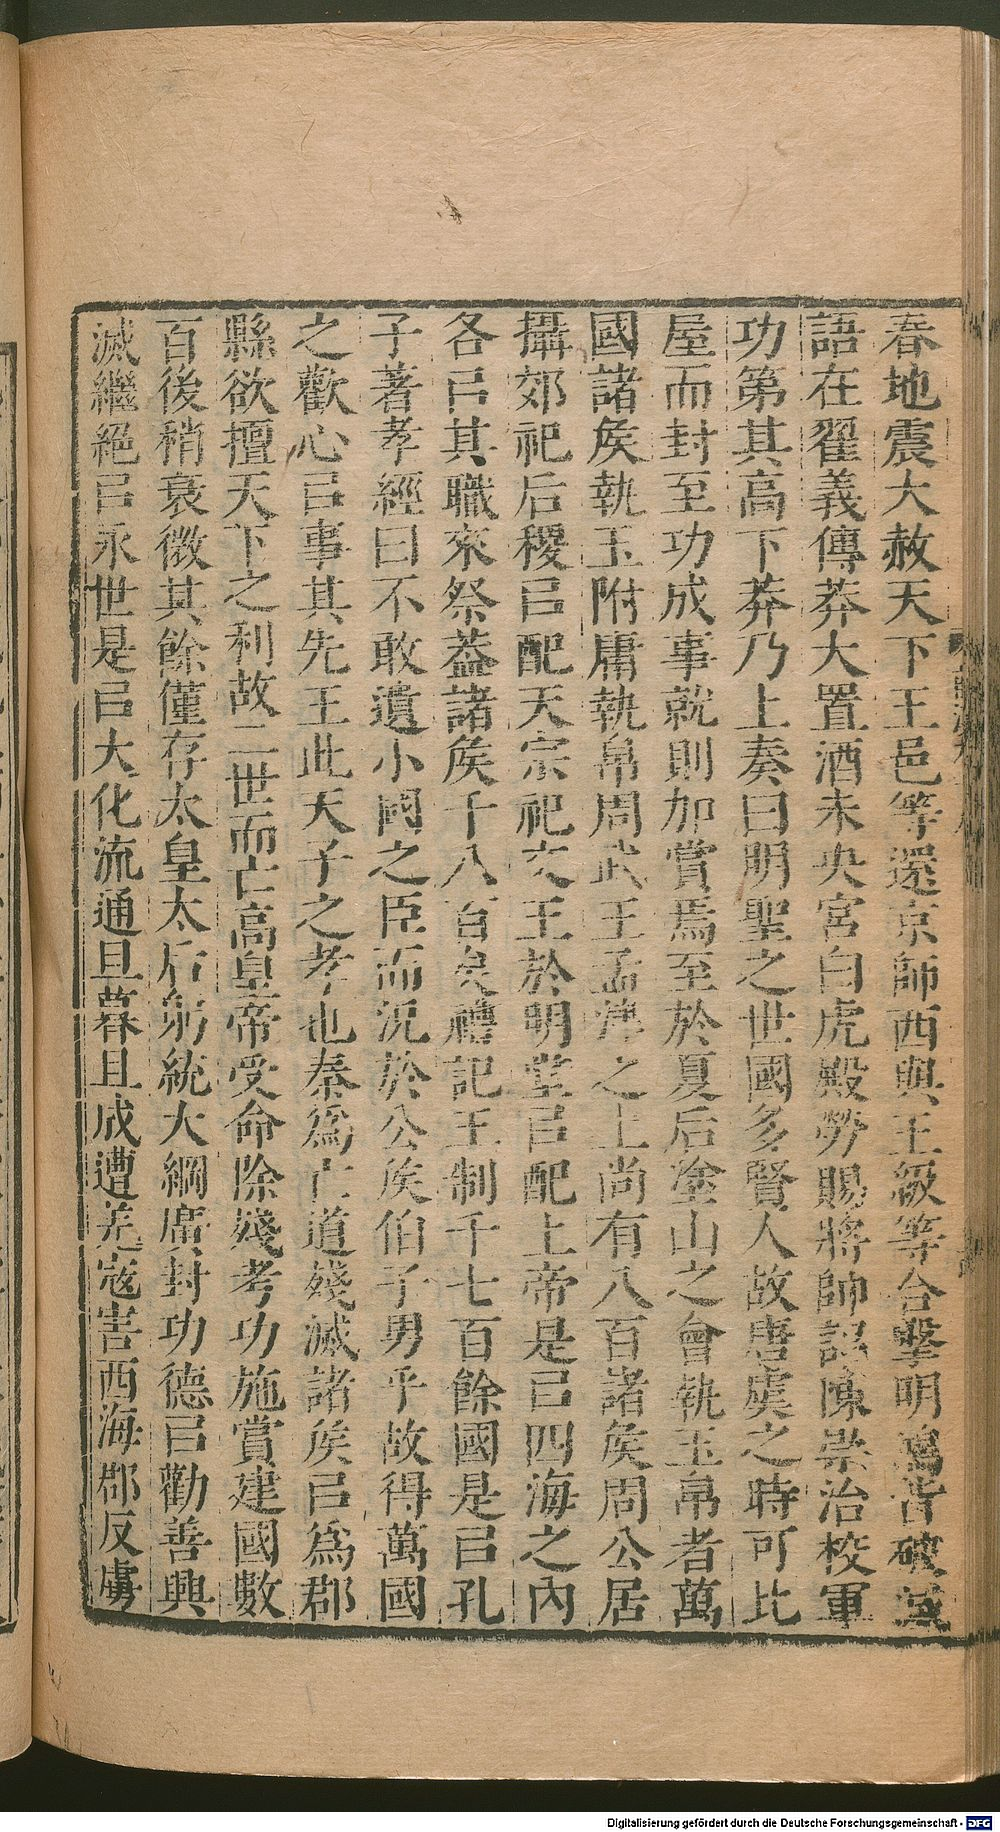 春地震大赦天下王邑等還京師西與王級等合擊明鴻皆破滅
語在翟義傳莽大置酒未央宮白虎殿勞賜將帥詔陳崇治校軍
功第其高下莽乃上奏曰明聖之世國多賢人故唐虞之時可比
屋而封至功成事就則加賞焉至於夏后塗山之會執玉帛者萬
國諸矦執玉附庸執帛周武王孟津之上尚有八百諸矦周公居
攝郊祀后稷㠯配天宗祀文王於明堂㠯配上帝是㠯四海之內
各㠯其職來祭葢諸矦千八百矣禮記王制千七百餘國是㠯孔
子著孝經曰不敢遺小國之臣而況於公矦伯子男乎故得萬國
之歡心㠯事其先王此天子之孝也秦爲亡道殘滅諸矦㠯爲郡
縣欲擅天下之利故二世而亡高皇帝受命除殘考功施賞建國數
百後稍衰微其餘僅存太皇太后躬統大綱廣封功德㠯勸善興
滅繼絕㠯永世是㠯大化流通旦暮且成遭羌寇害西海郡反虜
Digitalisierung gefördert durch die Deutsche Forschungsgemeinschaft - DFG